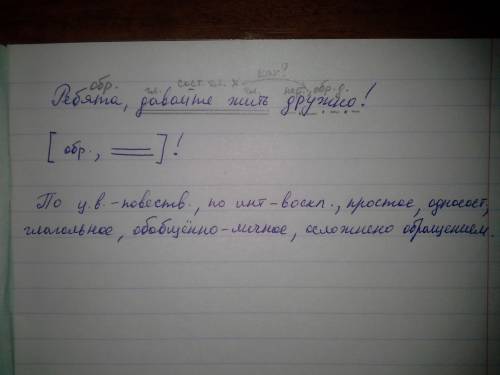 обр. сост. гл. х как?
гл. гл. нар. обр. д.
Ребята, давайте жить дружно!
[ обр., ══ ]!
По ц.в.-повеств., по инт-воскл., простое, односост,
глагольное, обобщённо-личное, осложнено обращением.